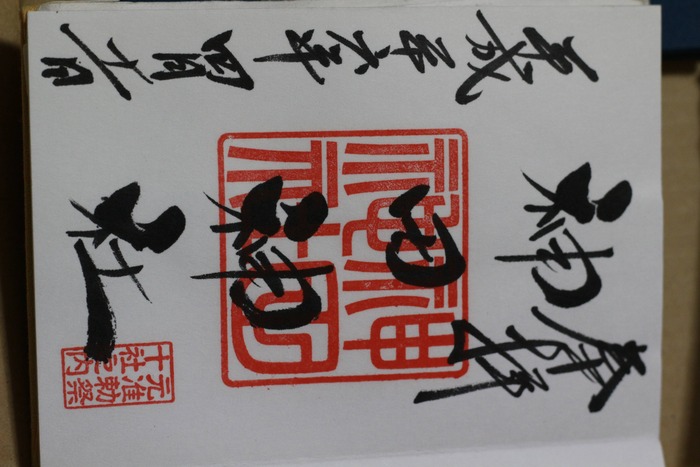 奉拝
神田神社
平成二十六年四月日
神田
神社
元准勅祭
十社之内